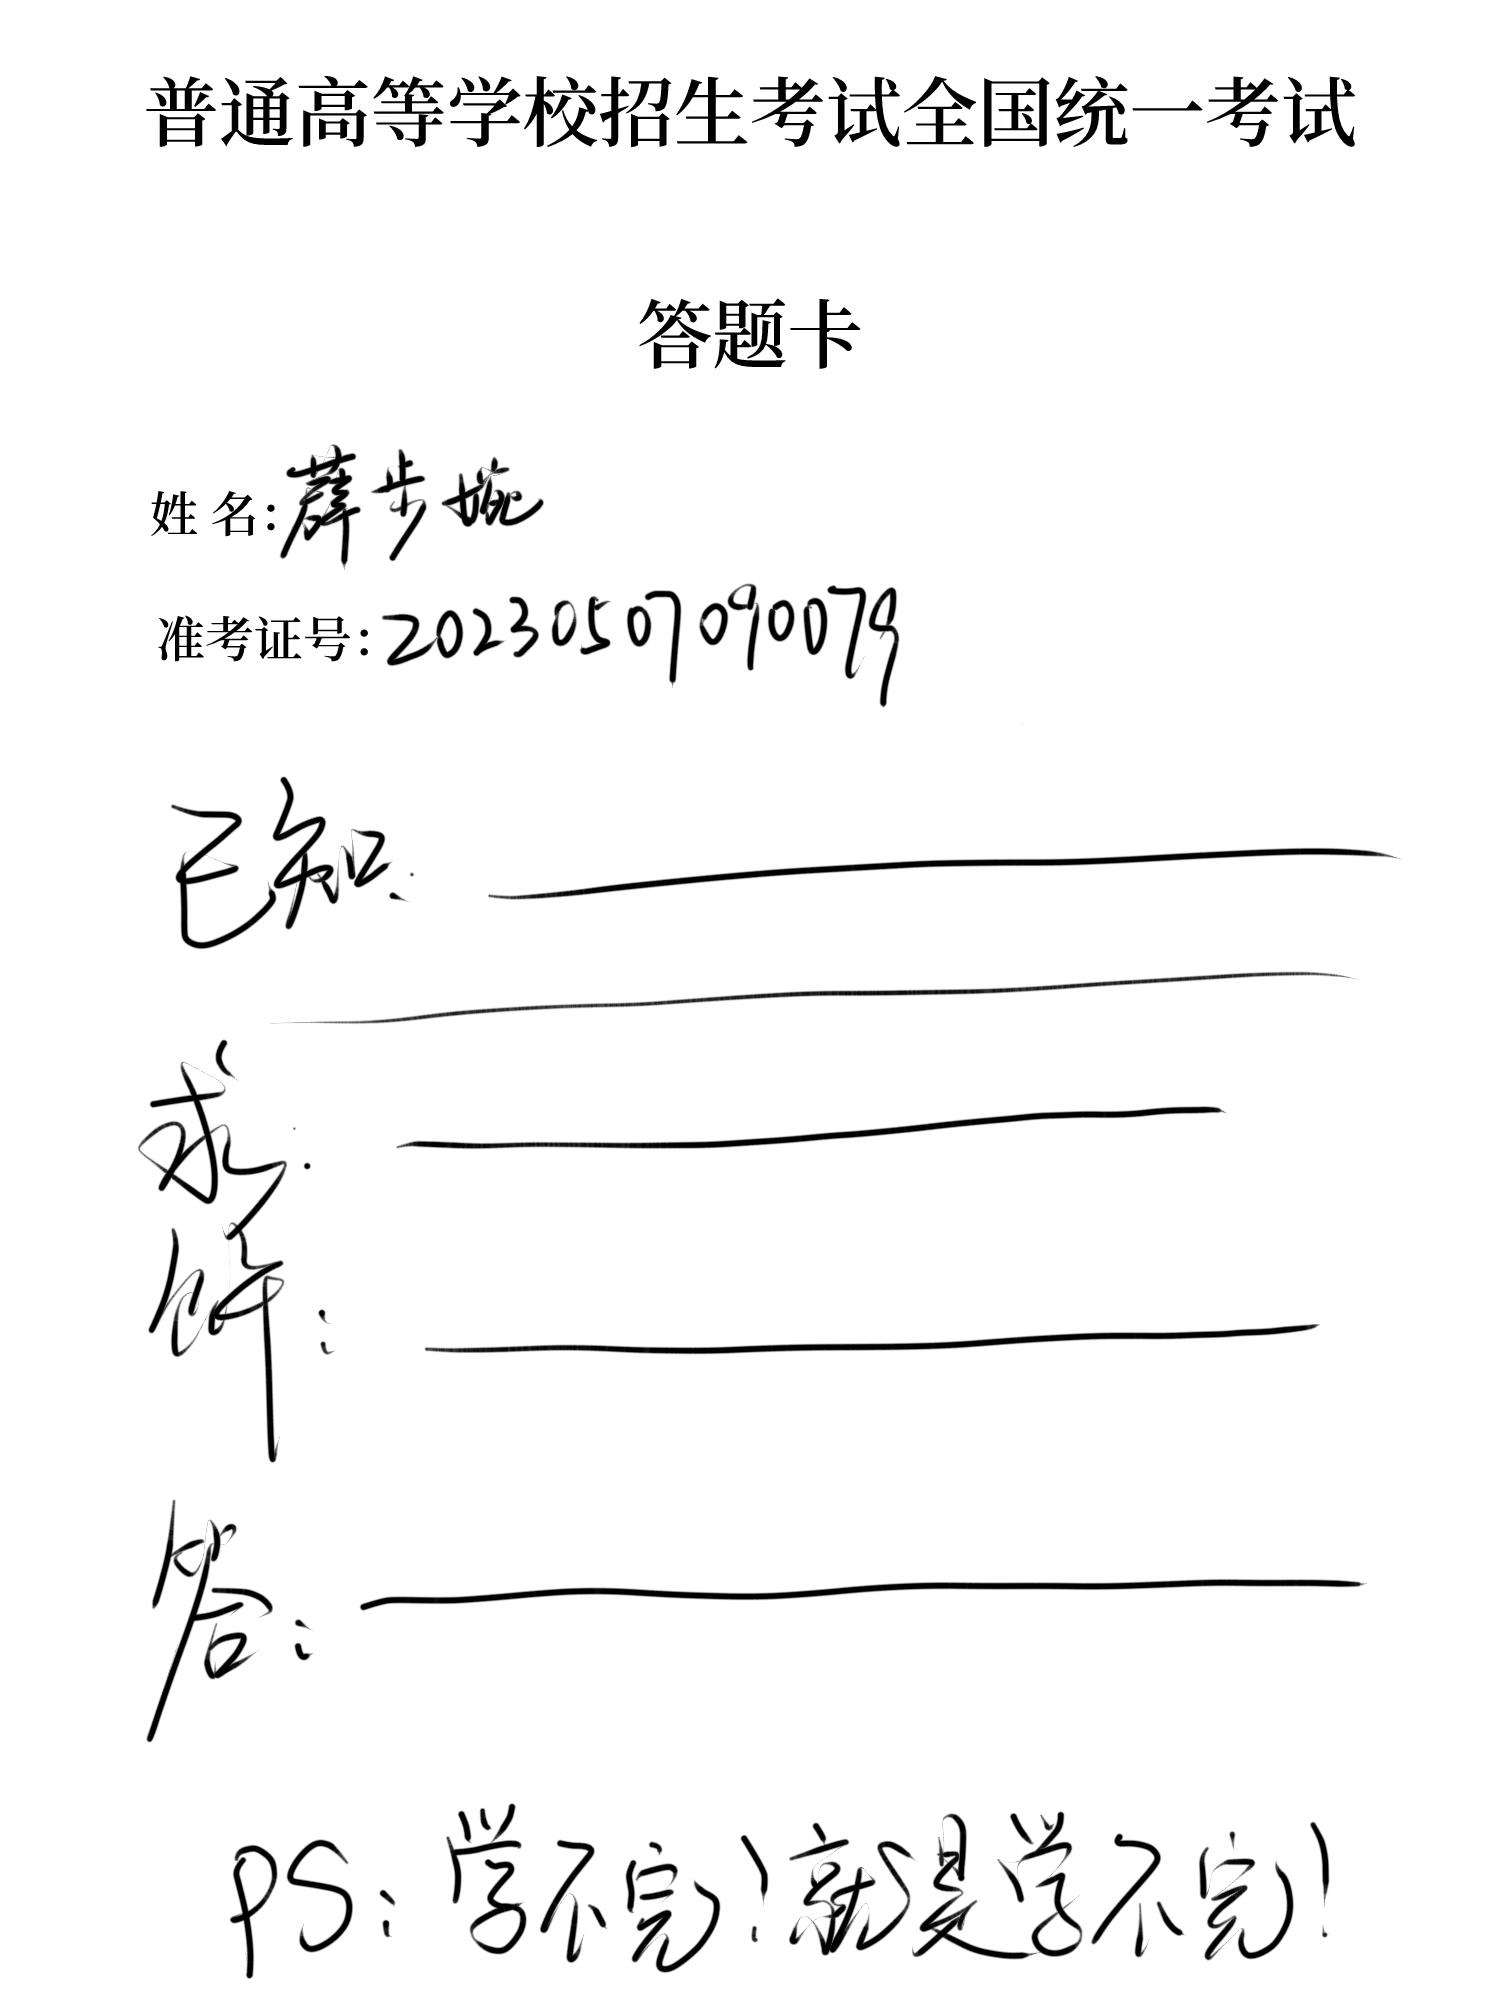 普通高等学校招生考试全国统一考试
答题卡
姓 名：薛步婉
准考证号：20230507090079
已知：
求：
解：
答：
PS：学不完！就是学不完！